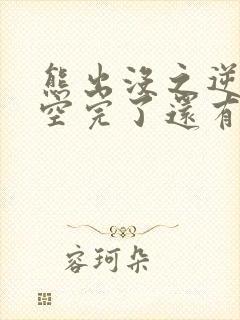 熊出沒之逆
空完了還有
容珂朵